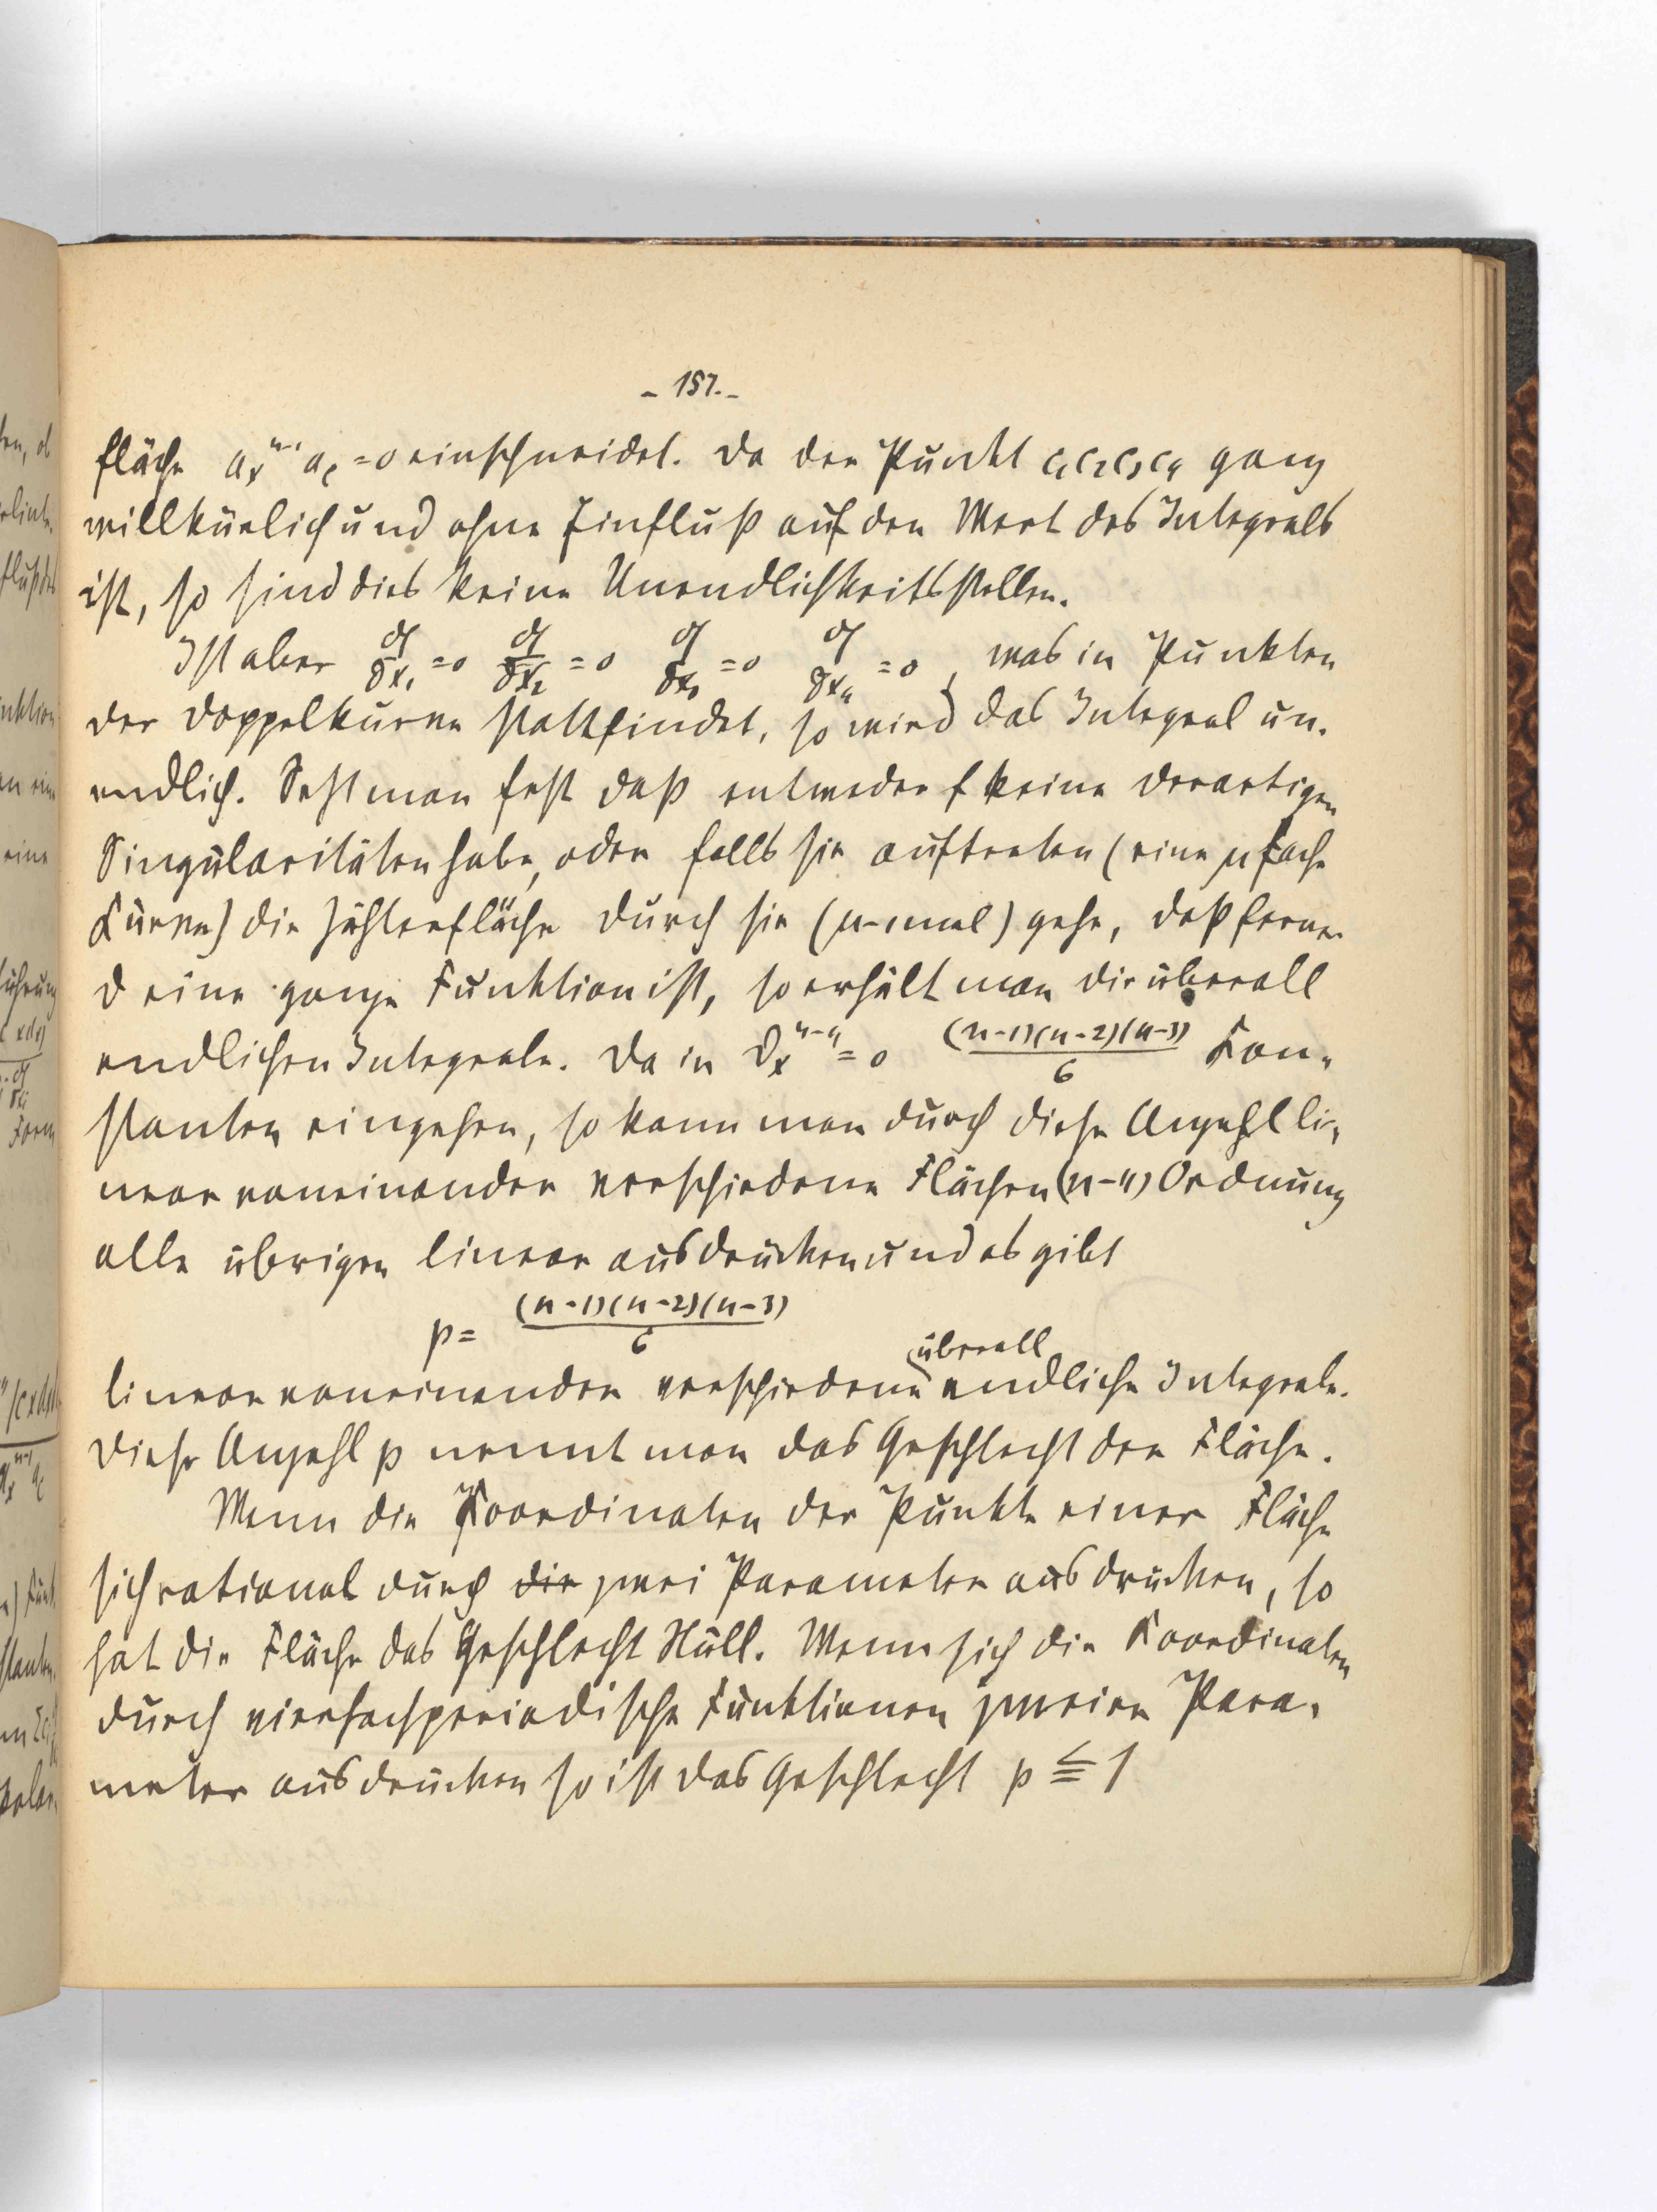 - 157. -
fläche aₓⁿ⁻¹ a_c = 0 einschneidet. Da der Punkt c₁c₂c₃c₄ ganz
willkürlich und ohne Einfluß auf den Wert des Integrals
ist, so sind dies keine Unendlichkeitsstellen.
Ist aber ∂f/∂x₁ = 0 ∂f/∂x₂ = 0 ∂f/∂x₃ = 0 ∂f/∂x₄ = 0, was in Punkten
der Doppelkurve stattfindet, so wird das Integral un-
endlich. Setzt man fest daß entweder f keine derartigen
Singularitäten habe, oder falls sie auftreten (eine μ fache
Kurve) die Zählerfläche durch sie (μ-mal) gehe, daß ferner
ϑ eine ganze Funktion ist, so erhält man die überall
endlichen Integrale. Da in ϑₓⁿ⁻⁴ = 0 (n-1)(n-2)(n-3)/6 Kon-
stanten eingehen, so kann man durch diese Anzahl li-
near voneinander verschiedene Flächen (n-4) Ordnung
alle übrigen linear ausdrücken und es gibt
p = (n-1)(n-2)(n-3)/6
linear voneinander verschiedene überall endliche Integrale.
Diese Anzahl p nennt man das Geschlecht der Fläche.
Wenn die Koordinaten der Punkte einer Fläche
sich rational durch die zwei Parameter ausdrücken, so
hat die Fläche das Geschlecht Null. Wenn sich die Koordinaten
durch vierfachperiodische Funktionen zweier Para-
meter ausdrücken so ist das Geschlecht p ≦ 1